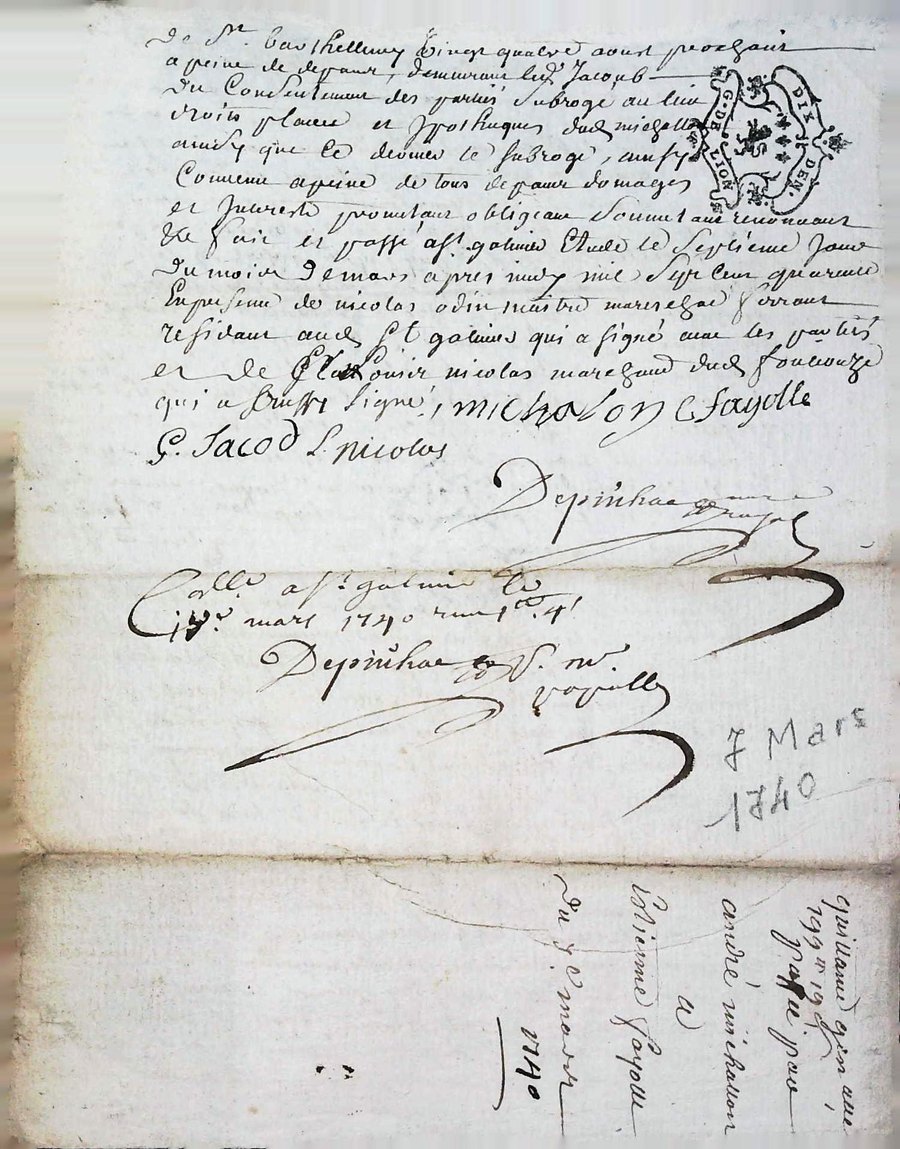 De St. Barthellemy vingt quatre aoust prochain
a peine de depans, demeurant led. Jacod
Du Consentement des parties subrogé au lieu
droits place et ypotheques dud. michallon
ainsy que ce dernier le subroge, ainsy
Convenu a peine de tous depans domages
et Interests promettant obligeant Soumettant renonceant
&c fait et passé a St. galmier Etude le Septieme Jour
Du mois de mars apres midy mil Sept Cent quarente
En presence de nicolas odin maitre mareschal ferrant
residant aud. St galmier qui a signé avec les parties
et de Louis nicolas marchand dud.
qui a aussy signé, michalon E fayolle
G. Jacod L nicolas
Depinhac
Conllé a St. galmier le
mars 1740
Depinhac
G. DE LION
DIX DEN.
7 Mars
1740
Guillaume
passée par
andré michallon
a
Estienne fayolle
Du 7e mars
1740